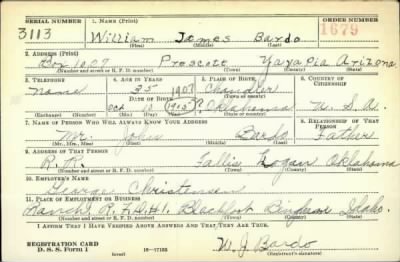 SERIAL NUMBER 1. NAME (Print) ORDER NUMBER
3113 William James Bardo 1679
(First) (Middle) (Last)
2. ADDRESS (Print)
Box 1097 Prescott Yavapia Arizona
(Number and street or R. F. D. number) (Town) (County) (State)
3. TELEPHONE 4. AGE IN YEARS 5. PLACE OF BIRTH 6. COUNTRY OF CITIZENSHIP
None 35 1907 Chandler
DATE OF BIRTH
Oct (1905) Oklahoma U. S. A.
(Mo.) (Day) (Yr.)
7. NAME OF PERSON WHO WILL ALWAYS KNOW YOUR ADDRESS 8. RELATIONSHIP OF THAT PERSON
Mr. John Bardo Father
(Mr., Mrs., Miss) (First) (Middle) (Last)
9. ADDRESS OF THAT PERSON
R.R. Fallis Logan Oklahoma
(Number and street or R. F. D. number) (Town) (County) (State)
10. EMPLOYER'S NAME
George Christensen
11. PLACE OF EMPLOYMENT OR BUSINESS
Ranch R.F.D.#1. Blackfoot Bingham Idaho.
(Number and street or R. F. D. number) (Town) (County) (State)
I AFFIRM THAT I HAVE VERIFIED ABOVE ANSWERS AND THAT THEY ARE TRUE.
REGISTRATION CARD
D. S. S. Form 1 16—17105 W. J. Bardo
(over) (Registrant's signature)